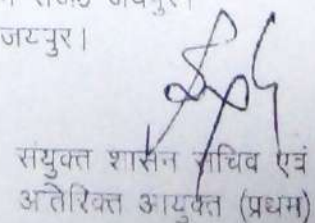 राज0 जयपुर।
जयपुर।
संयुक्त शासन सचिव एवं
अतिरिक्त आयुक्त (प्रथम)